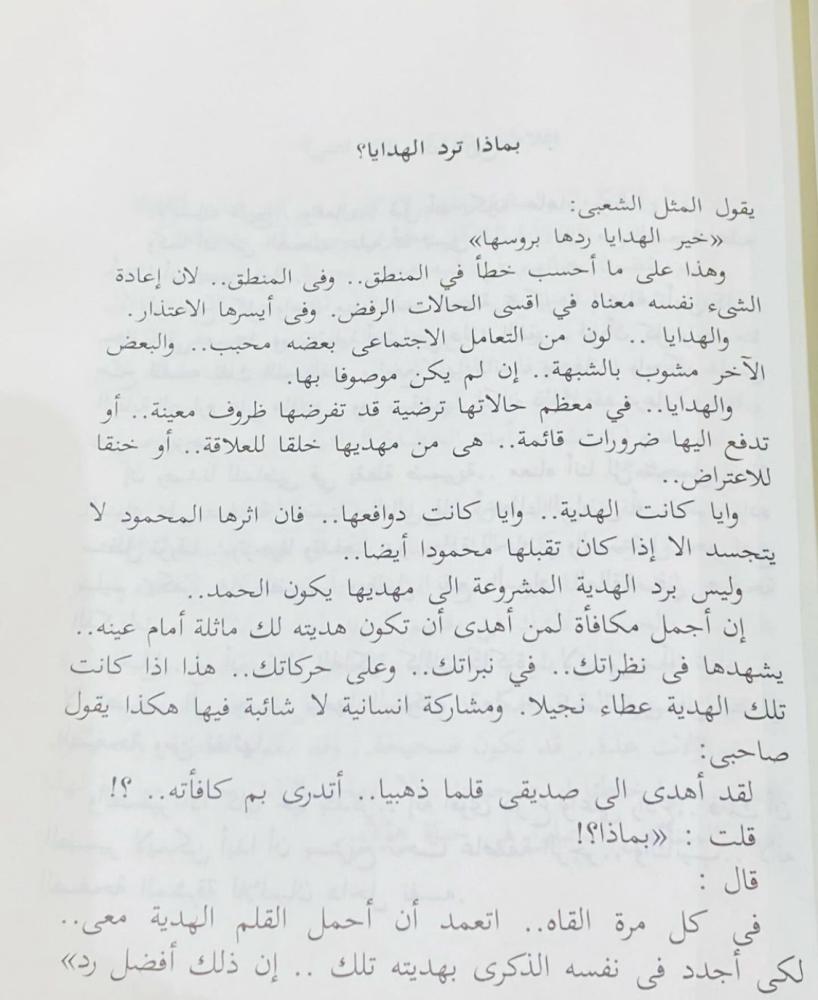 بماذا ترد الهدايا؟
يقول المثل الشعبى:
«خير الهدايا ردها بروسها»
وهذا على ما أحسب خطأ في المنطق.. وفى المنطق.. لان إعادة
الشىء نفسه معناه في اقسى الحالات الرفض. وفى أيسرها الاعتذار.
والهدايا .. لون من التعامل الاجتماعى بعضه محبب.. والبعض
الآخر مشوب بالشبهة.. إن لم يكن موصوفا بها.
والهدايا.. في معظم حالاتها ترضية قد تفرضها ظروف معينة.. أو
تدفع اليها ضرورات قائمة.. هى من مهديها خلقا للعلاقة.. أو خنقا
للاعتراض..
وايا كانت الهدية.. وايا كانت دوافعها.. فان اثرها المحمود لا
يتجسد الا إذا كان تقبلها محمودا أيضا..
وليس برد الهدية المشروعة الى مهديها يكون الحمد..
إن أجمل مكافأة لمن أهدى أن تكون هديته لك ماثلة أمام عينه..
يشهدها فى نظراتك.. في نبراتك.. وعلى حركاتك.. هذا اذا كانت
تلك الهدية عطاء نجيلا. ومشاركة انسانية لا شائبة فيها هكذا يقول
صاحبى:
لقد أهدى الى صديقى قلما ذهبيا.. أتدرى بم كافأته.. ؟!
قلت : «بماذا؟!
قال :
فى كل مرة القاه.. اتعمد أن أحمل القلم الهدية معى..
لكى أجدد فى نفسه الذكرى بهديته تلك .. إن ذلك أفضل رد»